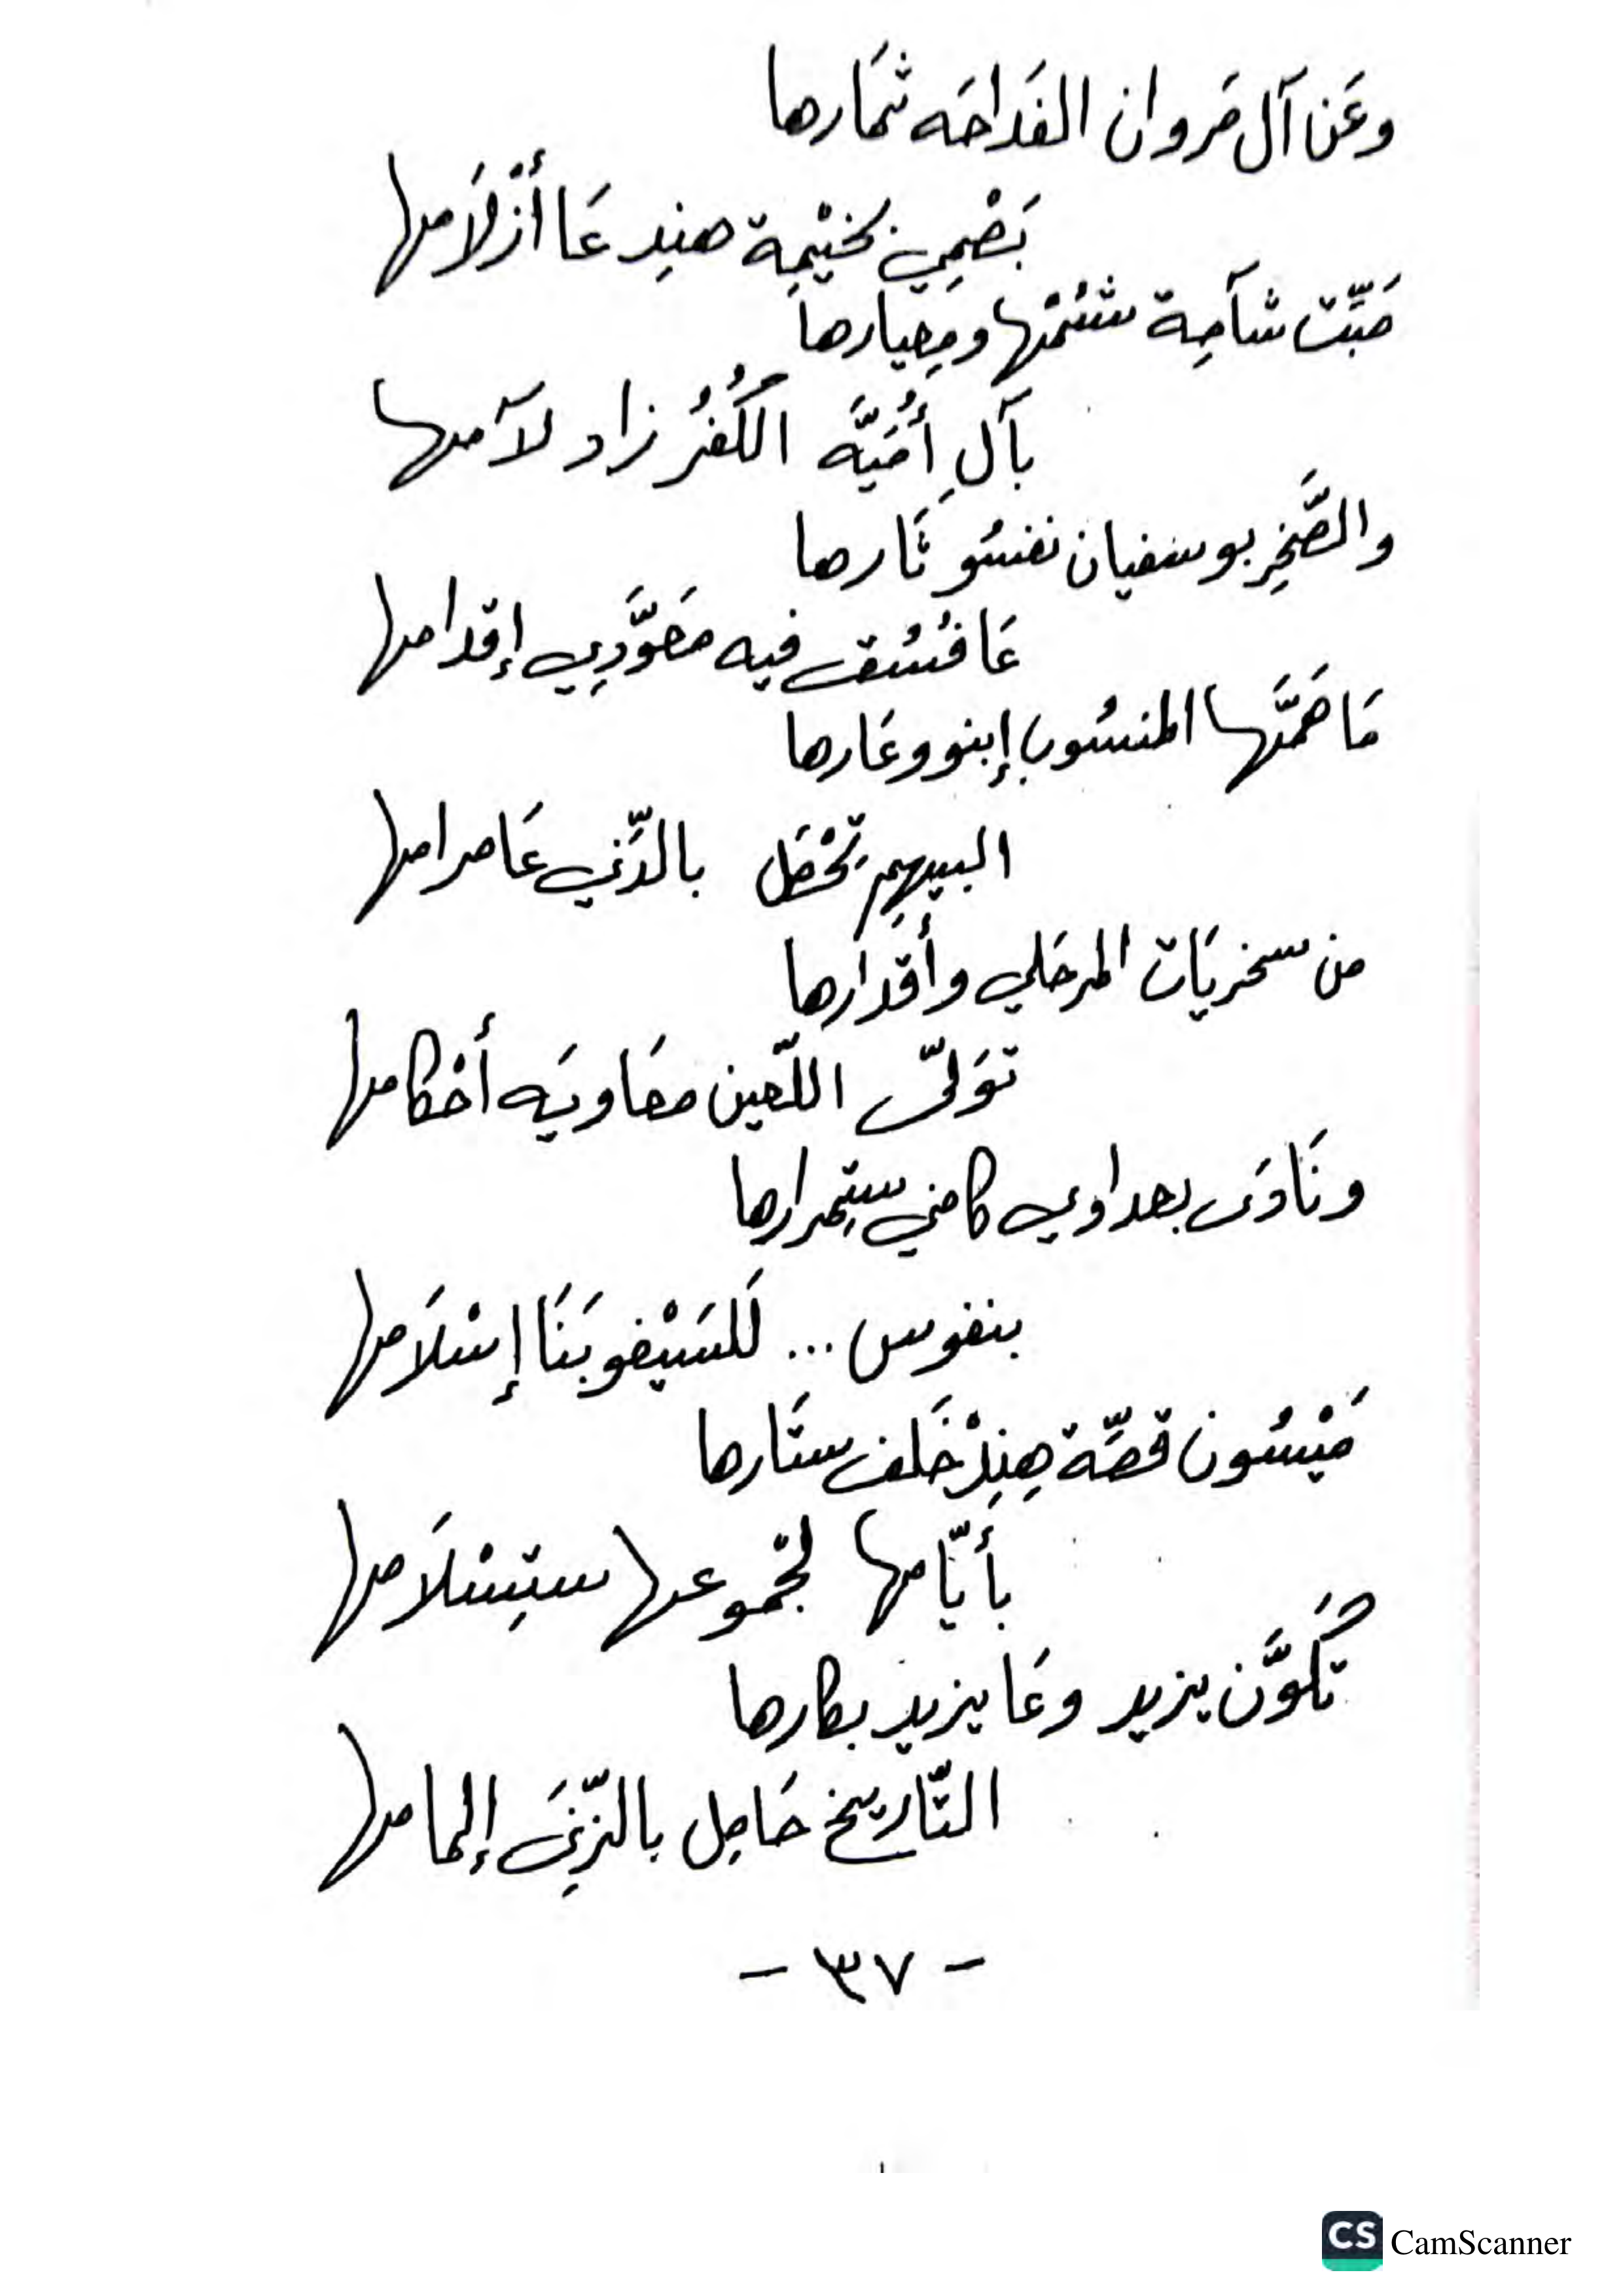 وعَن آل مَروان الفَداحَه ثمَارها
بَصْمِي بخَيْمِة هنِد عَا أزْلاَمها
مَيِّت شآمِة شتْمْتها ومِعيارها
بآلِ أُمَيَّه الكُفُر زاد لآمها
والصَّخِر بوسفيان نفسُو ثَارها
عَا فُسُق فيه مَعَوَّدِي إقدامها
مَا هَمَّها المنسُوب إبنو وعَارها
البيهِم تحْصَل بالدِّني عَا مرامها
من سخريَات المرحَلي وأقدَارها
توَلىّ اللّعين معَاويَه أحْكامها
ونَادَى بعداوي كامني ستِمرارها
بنفوس... لَلسَيْفو بَنَا إسْلاَمها
مَيْسُون قصّة هِنِدْ خَلف ستَارها
بأيّامها لجْموعها ستِسْلاَمها
تْكَوَّن يزيد وعَا يزيد بكارها
التّاريخ حَامِل بالزِّنَى إلمامها
- ٣٧ -
CS CamScanner